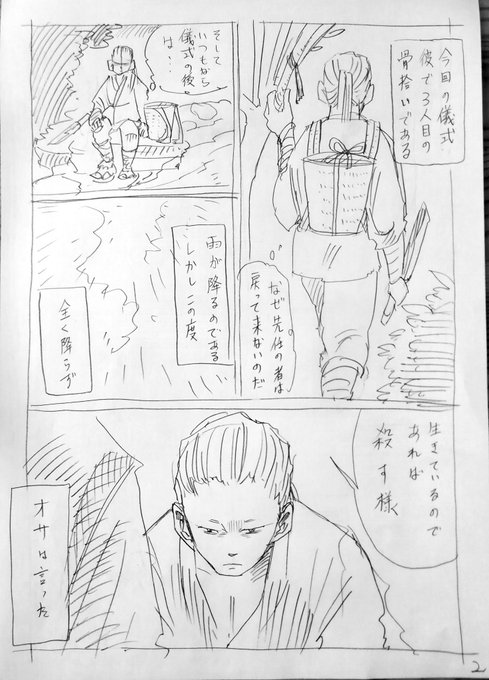 今回の儀式
彼で3人目の
骨拾いである
なぜ先任の者は
戻って来ないのだ
そして
いつもなら
儀式の後
は・・・
雨が降るのである
しかしこの度
全く降らず
生きているので
あれば
殺す様
オサは言った
2